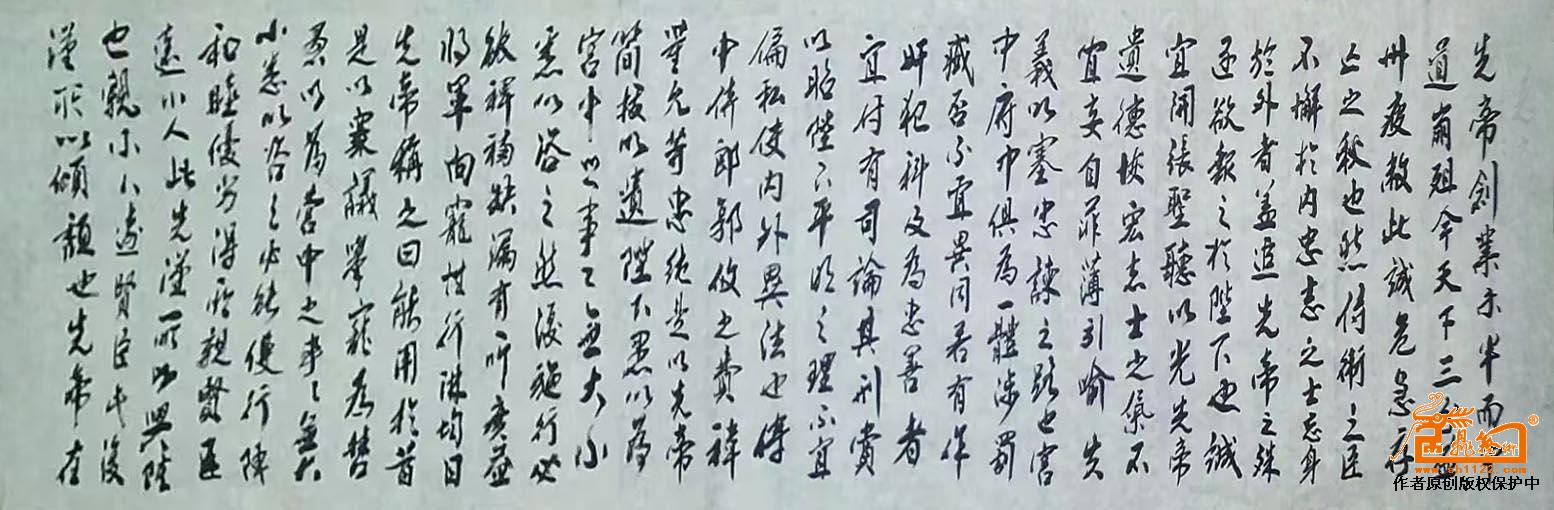 先帝創業未半而
道崩殂今天下三分
州疲敝此誠危急存
亡之秋也然侍衛之臣
不懈於内忠志之士忘身
於外者蓋追先帝之殊
遇欲報之於陛下也誠
宜開張聖聽以光先帝
遺德恢宏志士之氣不
宜妄自菲薄引喻失
義以塞忠諫之路也宫
中府中俱為一體陟罰
臧否不宜異同若有作
奸犯科及為忠善者
宜付有司論其刑賞
以昭陛下平明之理不宜
偏私使内外異法也侍
中侍郎郭攸之費禕
董允等忠純是以先帝
簡拔以遺陛下愚以為
宮中之事々無大小
悉以咨之然後施行必
能裨補缺漏有所廣益
將軍向寵性行淑均日
先帝稱之曰能用於昔
是以衆議舉寵為督
愚以為營中之事々無大
小悉以咨之必能使行陣
和睦優劣得所親賢臣
遠小人此先漢所以興隆
也親小人遠賢臣此後
漢所以傾頹也先帝在
www.sh1122.com
作者原创版权保护中